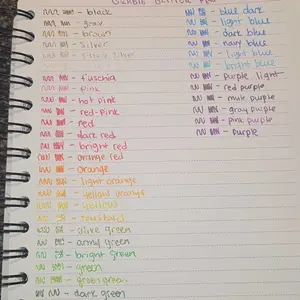 black
gray
brown
silver
silver
fuschia
pink
hot pink
red-pink
red
dark red
bright red
orange red
orange
light orange
yellow orange
yellow
mustard
olive green
army green
bright green
green
green
dark green
blue dark
light blue
dark blue
navy blue
light blue
bright blue
purple light
red purple
mute purple
gray purple
pink purple
purple